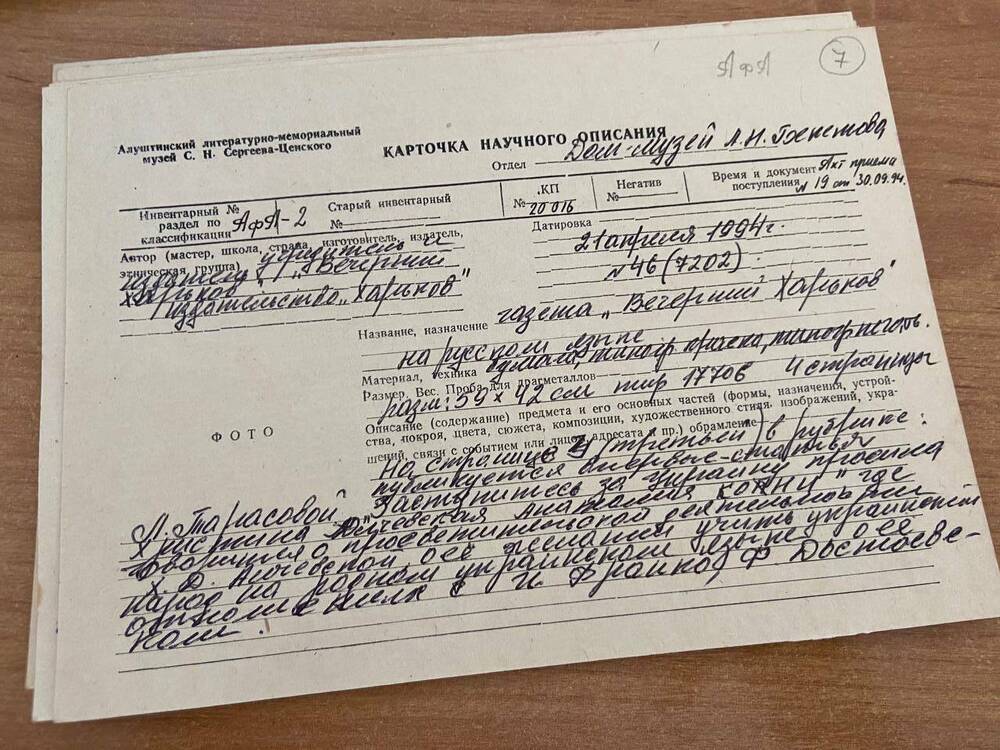 АфА 7
Алуштинский литературно-мемориальный
музей С. Н. Сергеева-Ценского
КАРТОЧКА НАУЧНОГО ОПИСАНИЯ
Отдел Дом-музей А.Н. Бекетова
Инвентарный №
раздел по
классификации АфА-2
Старый инвентарный
№
КП
№ 20016
Негатив
№
Время и документ Акт приема
поступления № 19 от 30.09.94.
Автор (мастер, школа, страна, изготовитель, издатель,
этническая группа) учредитель и
издатель „Вечерний
Харьков"
издательство „Харьков"
Датировка
21 апреля 1994 г.
№ 46 (7202).
Название, назначение газета „Вечерний Харьков"
на русском языке
Материал, техника бумага, типогр. краска, типогр. печать.
Размер. Вес. Проба для драгметаллов
разм: 59 х 42 см тир 17706 4 страницы
Описание (содержание) предмета и его основных частей (формы, назначения, устрой-
ства, покроя, цвета, сюжета, композиции, художественного стиля, изображений, укра-
шений, связи с событием или лицом, адресата и пр.) обрамление
ФОТО
На странице 3 (третьей) в рубрике:
публикуется впервые-статья
А. Тарасовой „Заступитесь за Украину просила
Христина Алчевская Анатолия Кони" где
говорится о просветительской деятельности
Х. Д. Алчевской, о её желании учить украинский
народ на родном украинском языке, о её
отношениях с И Франко, Ф. Достоевс-
ком.